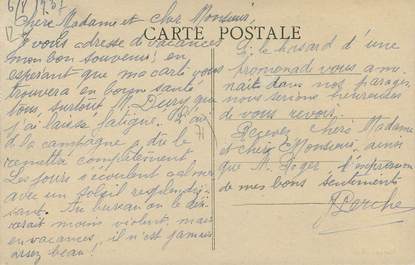 6/8/1937
Chère Madame et cher Monsieur,
CARTE POSTALE
Je vous adresse de vacances
mon bon souvenir en
espérant que ma carte vous
trouvera en bonne santé
tous, surtout M. que
j'ai laissé fatigué. L'air
de la campagne a dû le
remettre complètement.
Les jours s'écoulent calmes
avec un soleil resplendis-
sant. Au bureau on le dési-
rerait moins violent, mais
en vacances, il n'est jamais
assez beau !
Si le hasard d'une
promenade vous ame-
nait dans nos parages,
nous serions heureuses
de vous revoir.
Recevez, chère Madame
et cher Monsieur, ainsi
que M. Roger l'expression
de mes bons sentiments